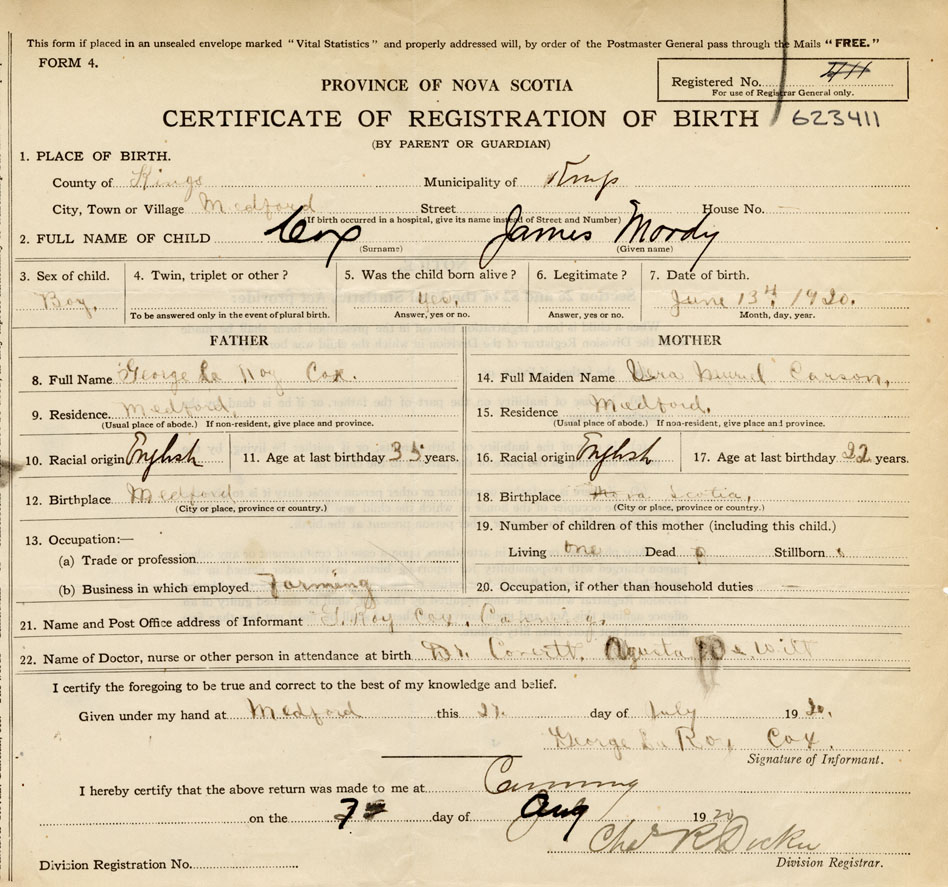 This form if placed in an unsealed envelope marked "Vital Statistics" and properly addressed will, by order of the Postmaster General pass through the Mails "FREE."
FORM 4.
Registered No.
For use of Registrar General only.
PROVINCE OF NOVA SCOTIA
CERTIFICATE OF REGISTRATION OF BIRTH 623411
(BY PARENT OR GUARDIAN)
1. PLACE OF BIRTH.
County of Kings Municipality of Kings
City, Town or Village Medford Street House No. —
(If birth occurred in a hospital, give its name instead of Street and Number)
2. FULL NAME OF CHILD Cox James Mordy
(Surname) (Given name)
3. Sex of child. 4. Twin, triplet or other? 5. Was the child born alive? 6. Legitimate? 7. Date of birth.
Boy. yes. June 13th 1920.
To be answered only in the event of plural birth. Answer, yes or no. Answer, yes or no. Month, day, year.
FATHER MOTHER
8. Full Name George Le Roy Cox. 14. Full Maiden Name Vera Carson,
9. Residence. Medford, 15. Residence Medford,
(Usual place of abode.) If non-resident, give place and province. (Usual place of abode.) If non-resident, give place and province.
10. Racial origin English 11. Age at last birthday 35 years. 16. Racial origin English 17. Age at last birthday 22 years.
12. Birthplace Medford 18. Birthplace Nova Scotia,
(City or place, province or country.) (City or place, province or country.)
13. Occupation:— 19. Number of children of this mother (including this child.)
(a) Trade or profession Living one Dead 0 Stillborn
(b) Business in which employed Farming 20. Occupation, if other than household duties —
21. Name and Post Office address of Informant Roy Cox, Canning,
22. Name of Doctor, nurse or other person in attendance at birth Dr. Agusta De Witt
I certify the foregoing to be true and correct to the best of my knowledge and belief.
Given under my hand at Medford this 27. day of July 1920.
George Le Roy Cox.
Signature of Informant.
I hereby certify that the above return was made to me at Canning
on the 7 day of Aug 1920
Chas R
Division Registration No. Division Registrar.